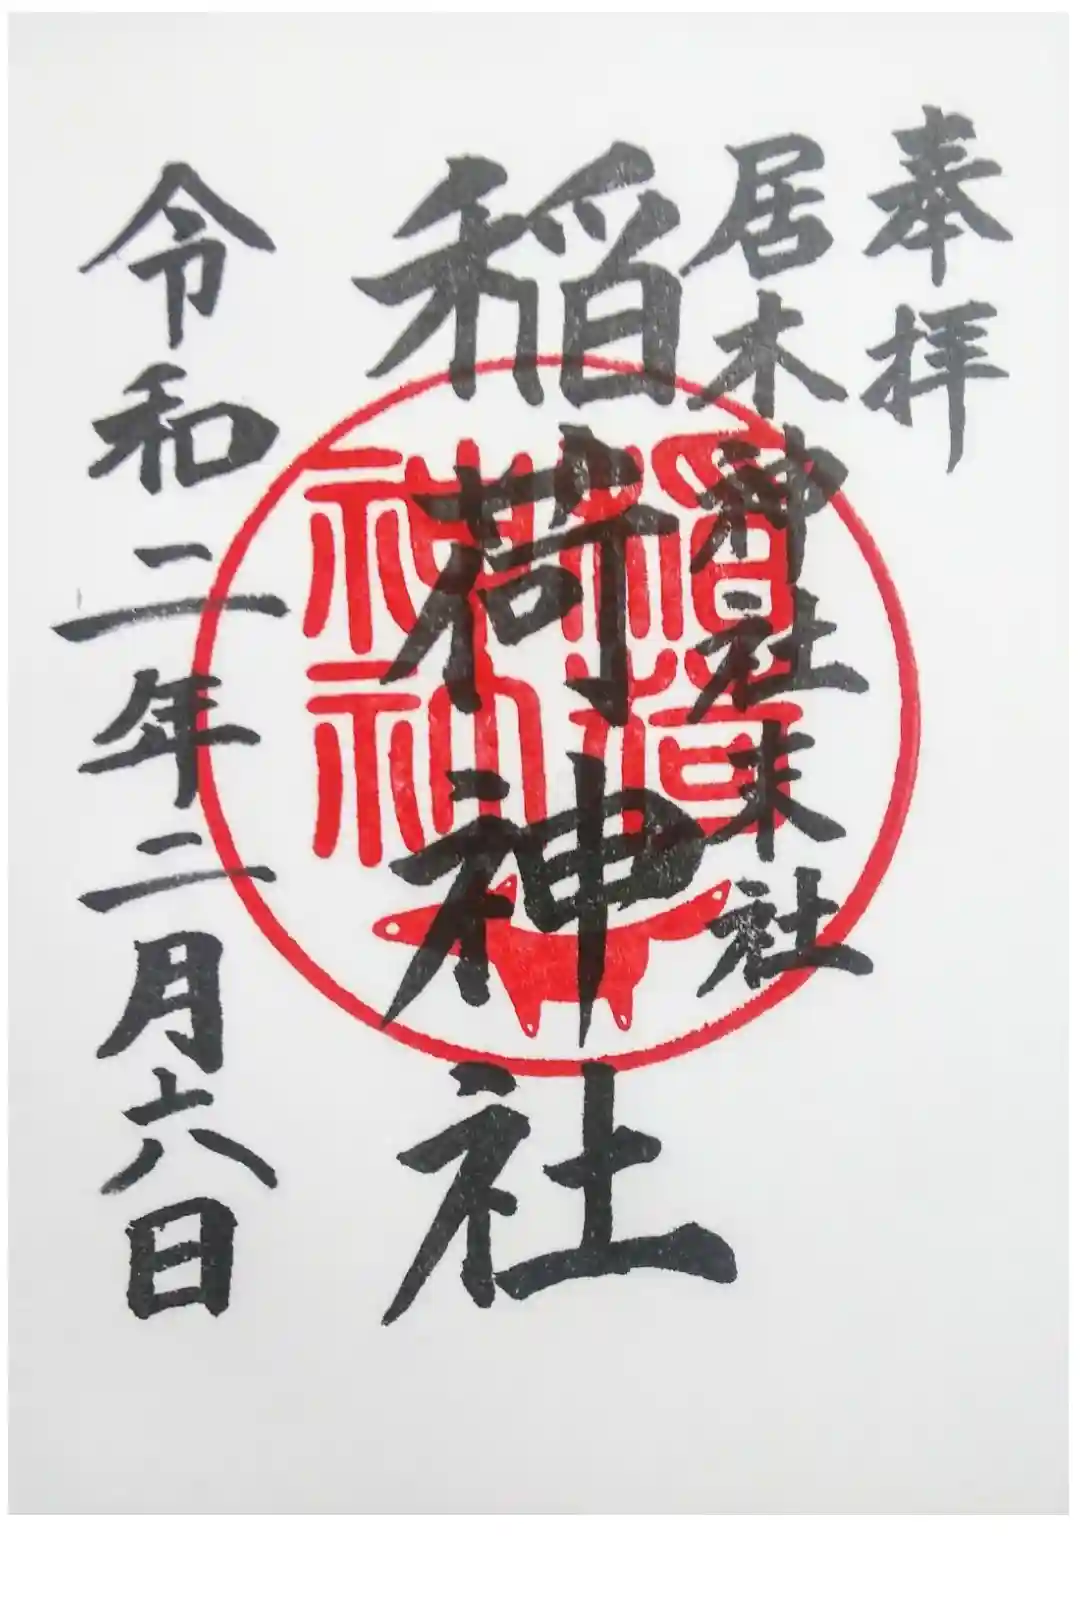 奉拝
居木神社末社
稲荷神社
稲荷
神社
令和二年二月六日